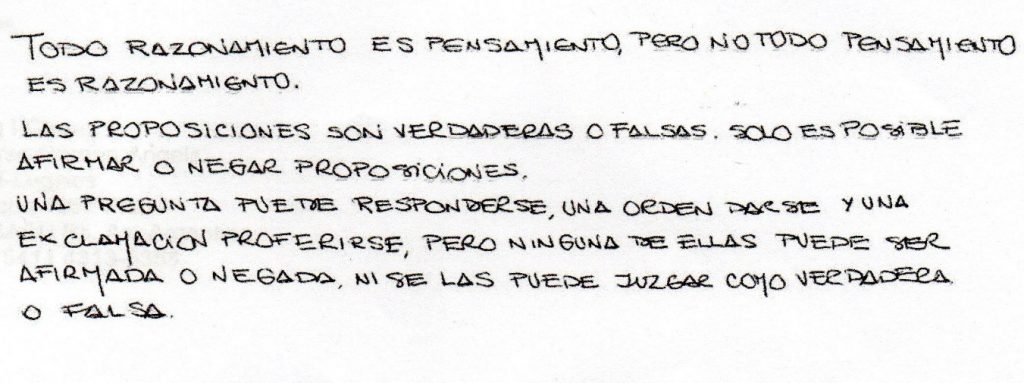 TODO RAZONAMIENTO ES PENSAMIENTO, PERO NO TODO PENSAMIENTO
ES RAZONAMIENTO.
LAS PROPOSICIONES SON VERDADERAS O FALSAS. SOLO ES POSIBLE
AFIRMAR O NEGAR PROPOSICIONES.
UNA PREGUNTA PUEDE RESPONDERSE, UNA ORDEN DARSE Y UNA
EXCLAMACION PROFERIRSE, PERO NINGUNA DE ELLAS PUEDE SER
AFIRMADA O NEGADA, NI SE LAS PUEDE JUZGAR COMO VERDADERA
O FALSA.